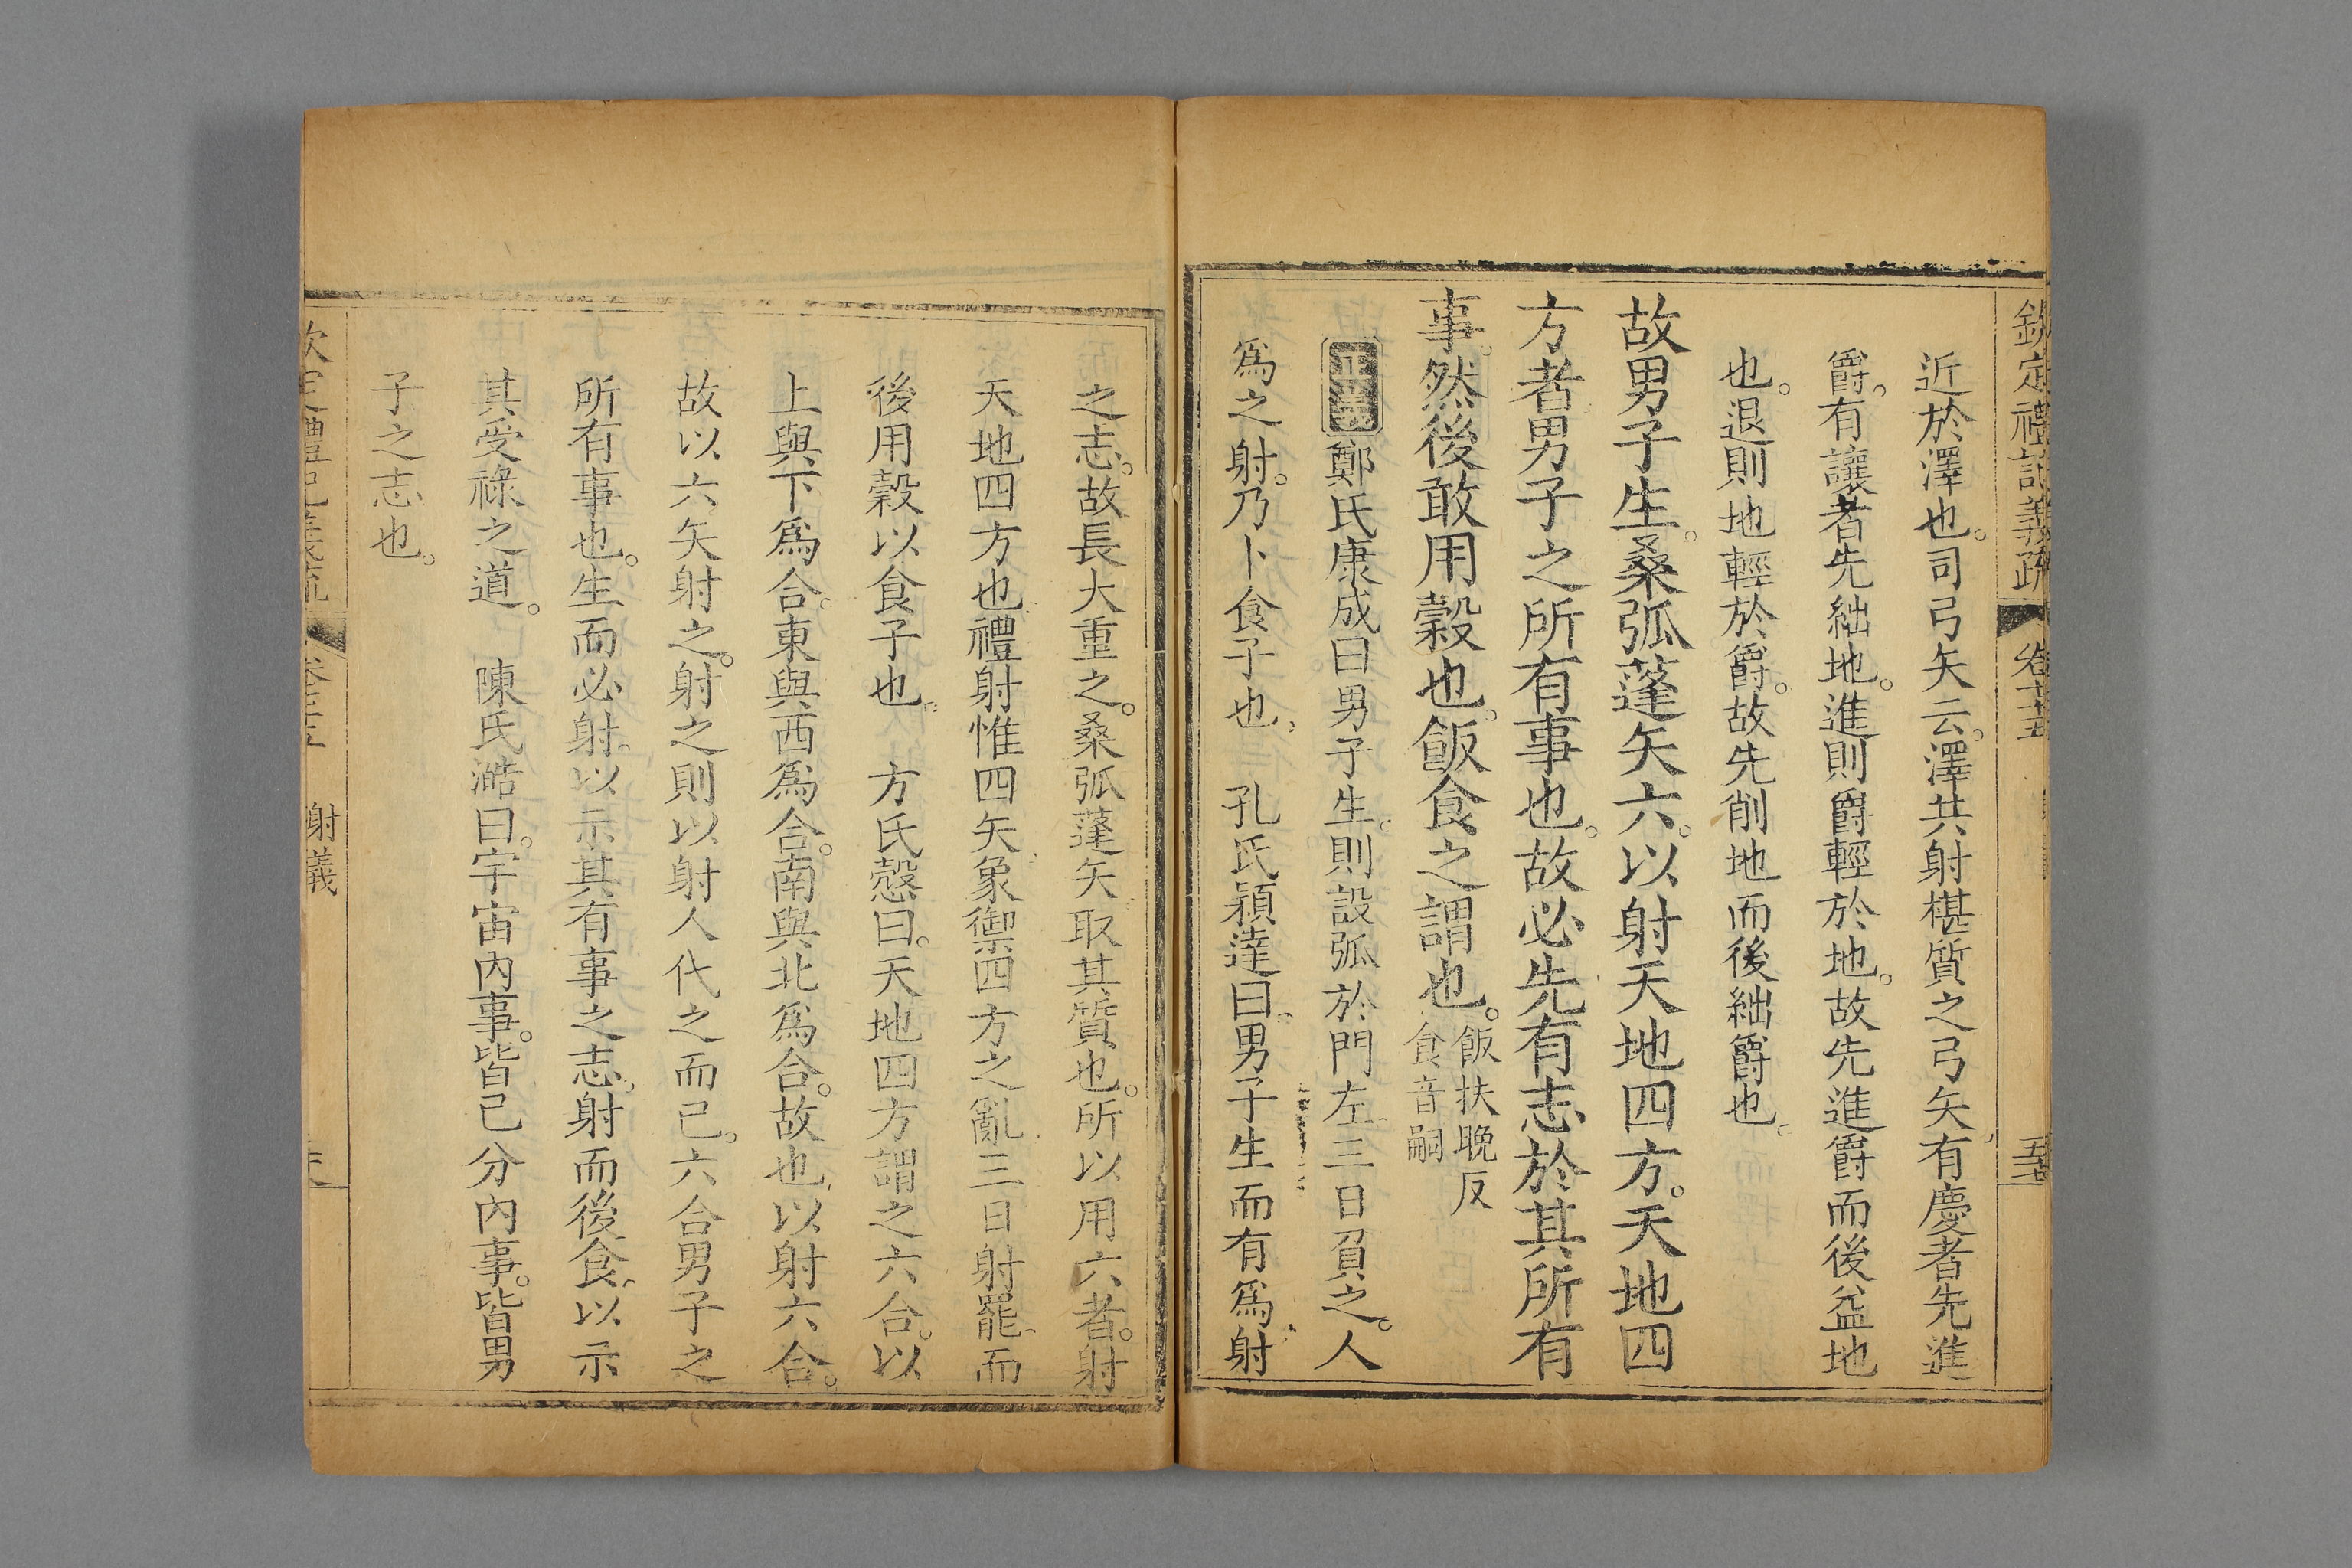 欽定禮記義疏
近於澤也。司弓矢云。澤共射椹質之弓矢。有慶者先進
爵。有讓者先絀地。進則爵輕於地。故先進爵而後益地
也。退則地輕於爵。故先削地而後絀爵也。
故男子生。桑弧蓬矢六。以射天地四方。天地四
方者男子之所有事也。故必先有志於其所有
事。然後敢用穀也。飯食之謂也。飯扶晚反
食音嗣
正義鄭氏康成曰男子生。則設弧於門左。三日負之。人
爲之射。乃卜食子也。 孔氏穎達曰。男子生而有爲射
之志。故長大重之。桑弧蓬矢取其質也。所以用六者。射
天地四方也。禮射惟四矢。象禦四方之亂。三日射罷。而
後用穀以食子也。 方氏慤曰。天地四方謂之六合。以
上與下爲合。東與西爲合。南與北爲合。故也。以射六合。
故以六矢射之。射之則以射人代之而已。六合男子之
所有事也。生而必射。以示其有事之志。射而後食。以示
其受祿之道。 陳氏澔曰。宇宙內事。皆己分內事。皆男
子之志也。
射義